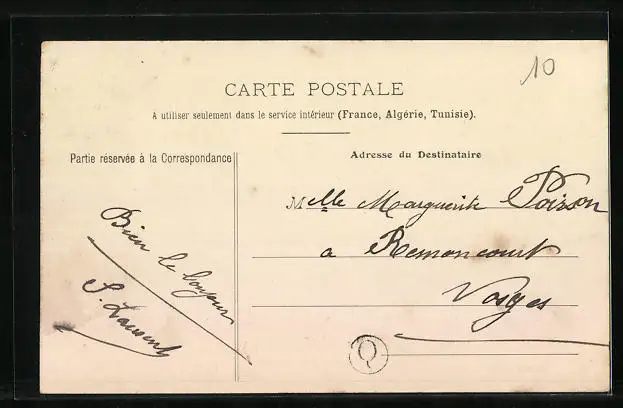 10
CARTE POSTALE
A utiliser seulement dans le service intérieur (France, Algérie, Tunisie).
Partie réservée à la Correspondance
Adresse du Destinataire
Melle Marguerite Poisson
a Remoncourt
Vosges
Bien le bonjour
Q